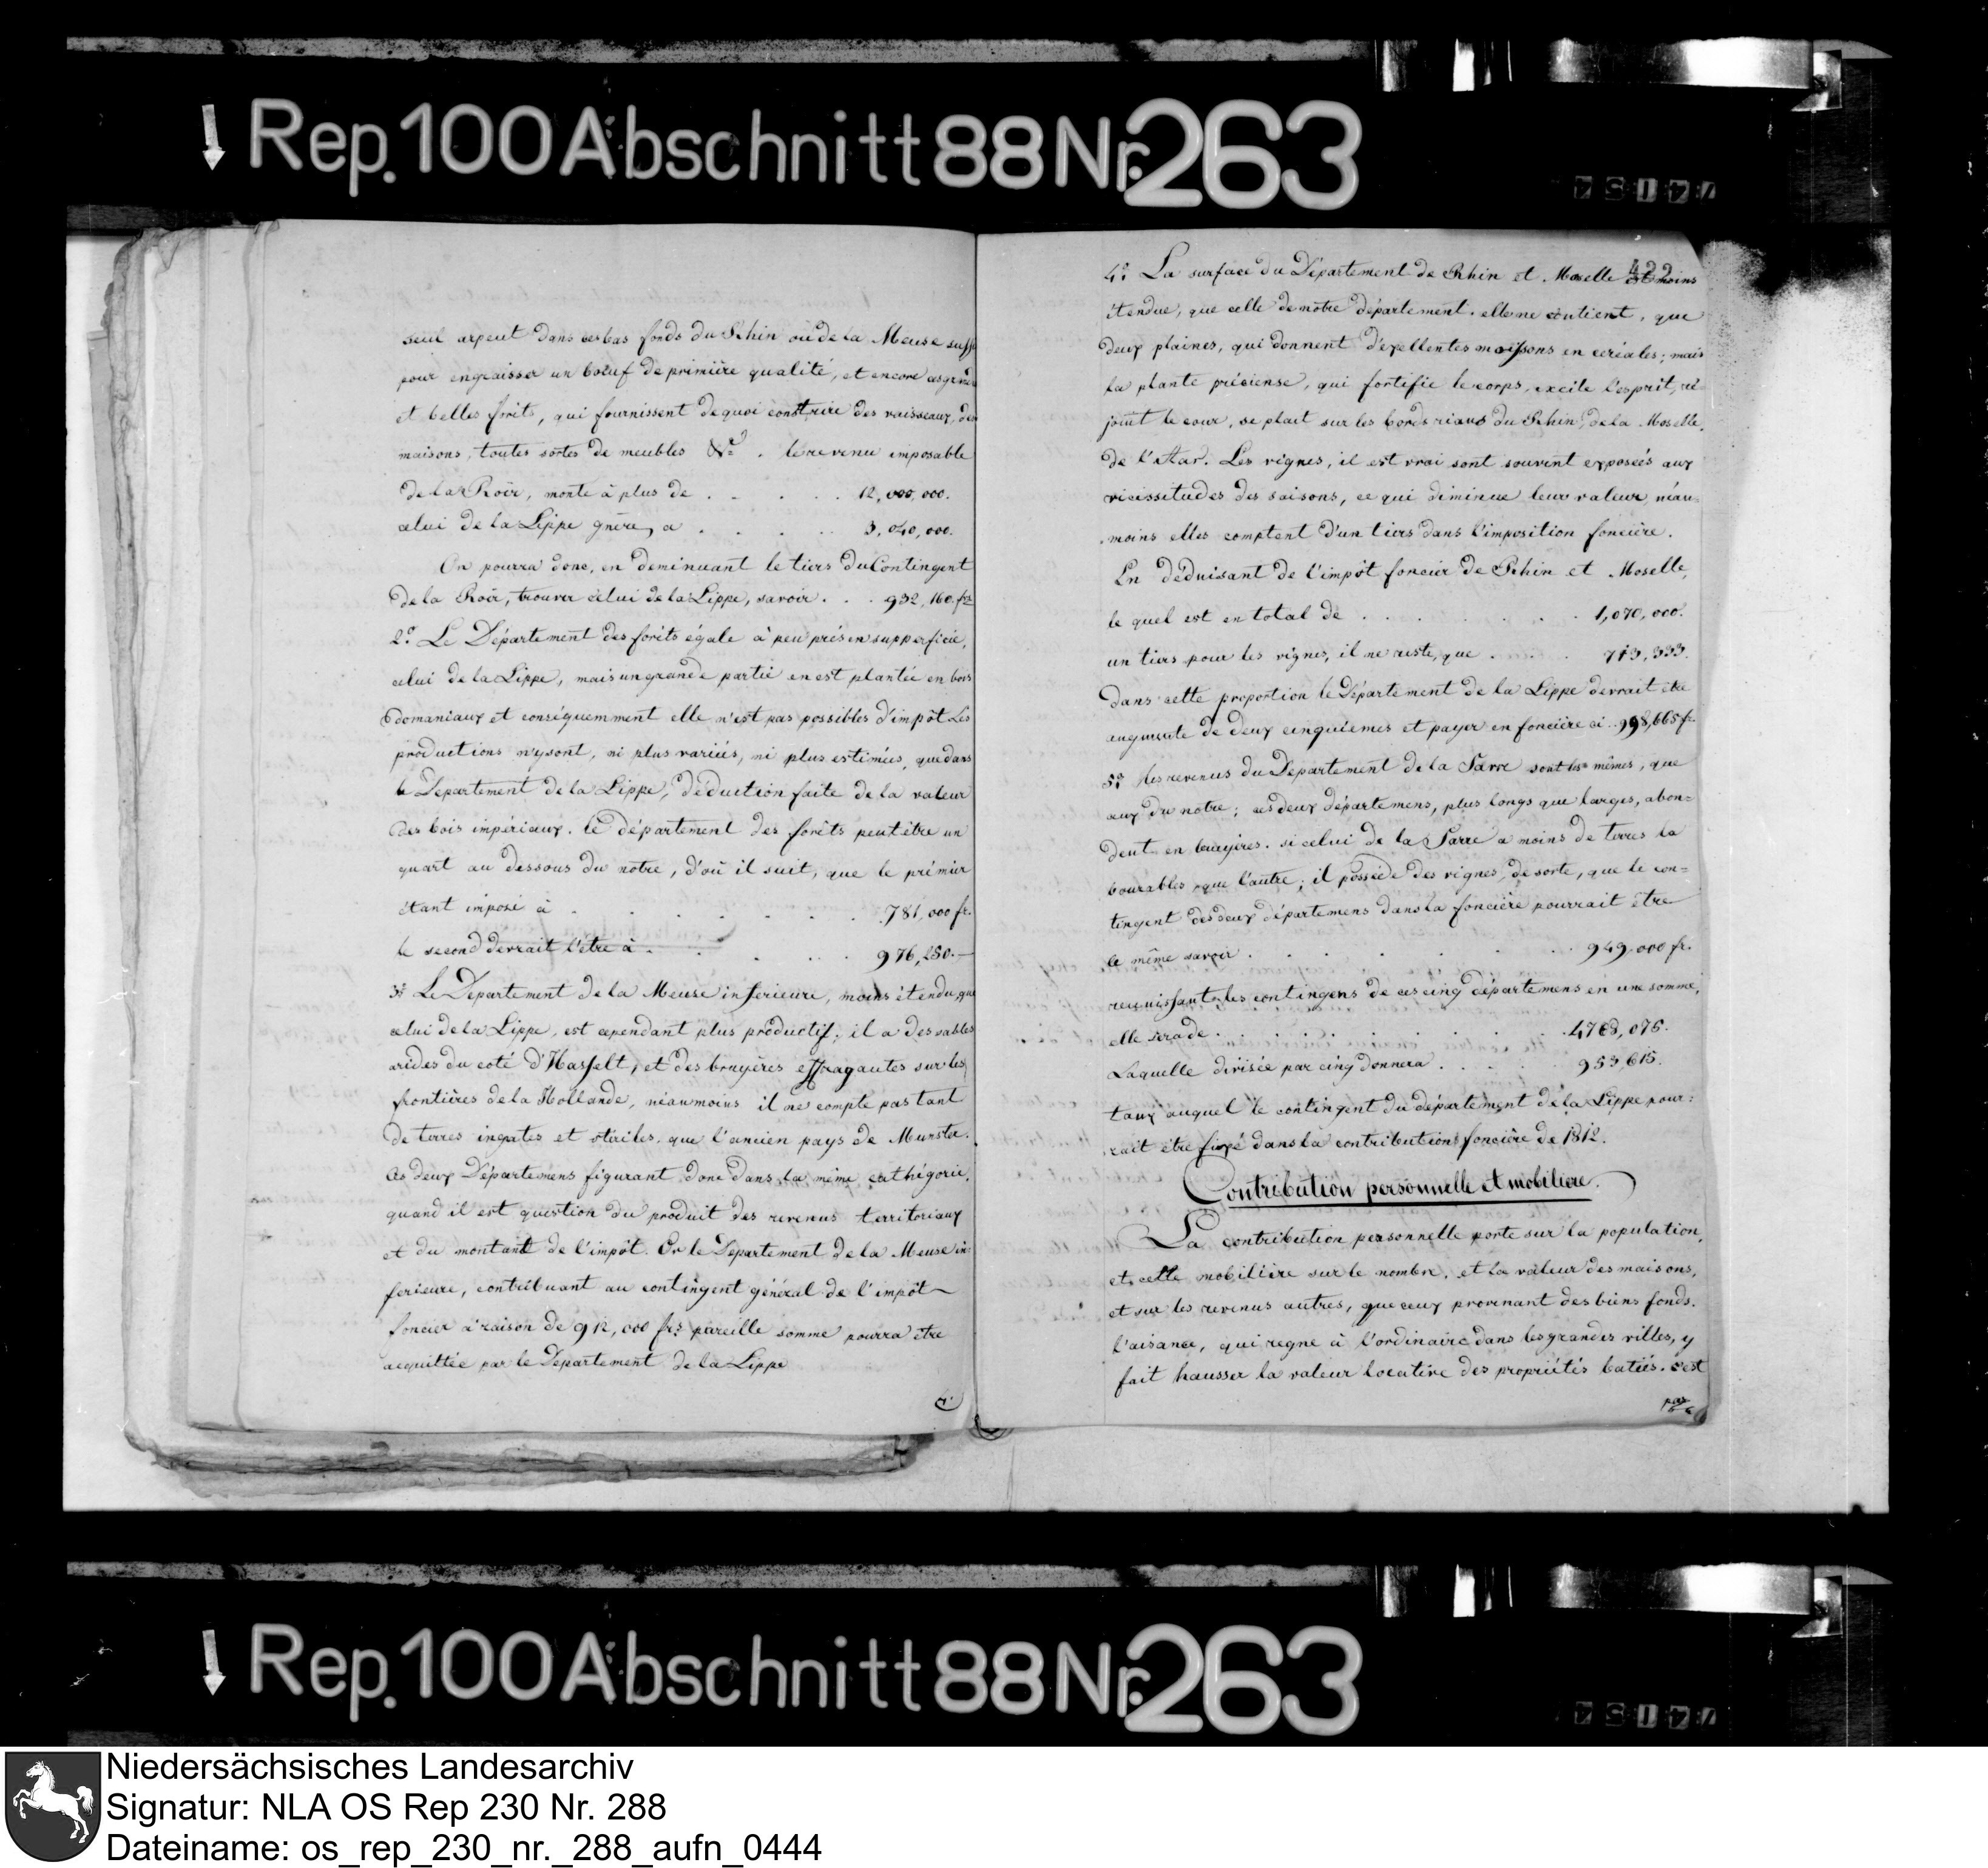 Rep. 100 Abschnitt 88 Nr. 263
seul arpent dans ces bas fonds du Rhin ou de la Meuse suffit
pour engraisser un boeuf de primiére qualité, et encore ces grandes
et belles forêts, qui fournissent de quoi construire des vaisseaux, des
maisons, toutes sortes de meubles &c. le revenu imposable
de la Roër, monte à plus de . . . . . 12,000,000.
celui de la Lippe guère, a . . . . . 3,040,000.
On pourra donc, en deminuant le tiers du Contingent
de la Roër, trouver celui de la Lippe, savoir . . . 932,160. frs
2.° Le Département des forêts égale à peu prés en supperficie,
celui de la Lippe, mais un grande partie en est plantée en bois
domaniaux et conséquemment elle n'est pas possibles d'impôt Les
productions n'y sont, ni plus variées, ni plus estimées, que dans
le Departement de la Lippe, déduction faite de la valeur
des bois impériaux. le département des forêts peut être un
quart au dessous du notre, d'où il suit, que le prémier
étant imposé à . . . . . . . 781,000 fr.
le second devrait l'être à . . . . . 976,250.—
3.° Le Departement de la Meuse inferieure, moins étendu, que
celui de la Lippe, est cependant plus productif; il a des sables
arides du coté d'Hasselt, et des bruyères
sur les
frontières de la Hollande, néaumoins il ne compte pas tant
de terres ingates et stériles, que l'ancien pays de Munster.
Ces deux Départemens figurant donc dans la même cathégorie,
quand il est question du produit des revenus territoriaux
et du montant de l'impôt. Or le Departement de la Meuse in-
ferieure, contribuant au contingent général de l'impôt
foncier à raison de 912,000 frs. pareille somme pourra être
acquittée par le Departement de la Lippe
4.°
422
4.° La surface du Département de Rhin et Moselle est moins
étendue, que celle de nôtre département. elle ne contient, que
deux plaines, qui donnent d'exellentes moissons en céréales; mais
la plante préciense, qui fortifie le corps, excite l'esprit, ré
jouit le cour, se plait sur les bords rians du Rhin, de la Moselle,
de l'Aar. Les vignes, il est vrai sont souvent exposeés aux
vicissitudes des saisons, ce qui diminue leur valeur, néau-
moins elles comptent d'un tiers dans l'imposition foncière.
En déduisant de l'impôt foncier de Rhin et Moselle,
le quel est en total de . . . . . . 1,070,000.
un tiers pour les vignes, il ne reste, que . . . 713,333.
Dans cette proportion le Département de la Lippe devrait être
augmenté de deux cinquièmes et payer en foncière ci . . 998,665 fr.
5.° les revenus du Departement de la Sarre sont les mêmes, que
ceux du notre; ces deux départemens, plus longs que larges, abon-
dent en bruyères. si celui de la Sarre a moins de terres la
bourables, que l'autre; il possède des vignes, de sorte, que le con-
tingent des deux départemens dans la foncière pourrait être
le même savoir . . . . . . 949,000 fr.
reunissant les contingens de ces cinq départemens en une somme,
elle sera de . . . . . . . 4768,075.
Laquelle divisée par cinq donnera . . . . 953,615.
taux auquel le contingent du département de la Lippe pour-
rait être fixé dans la contribution foncière de 1812.
Contribution personnelle et mobiliere.
La contribution personnelle porte sur la population,
et celle mobilière sur le nombre, et la valeur des maisons,
et sur les revenus autres, que ceux provenant des biens fonds.
l'aisance, qui regne à l'ordinaire dans les grandes villes, y
fait hausser la valeur locative des propriétés baties. c'est
par
Rep. 100 Abschnitt 88 Nr. 263
Niedersächsisches Landesarchiv
Signatur: NLA OS Rep 230 Nr. 288
Dateiname: os_rep_230_nr._288_aufn_0444